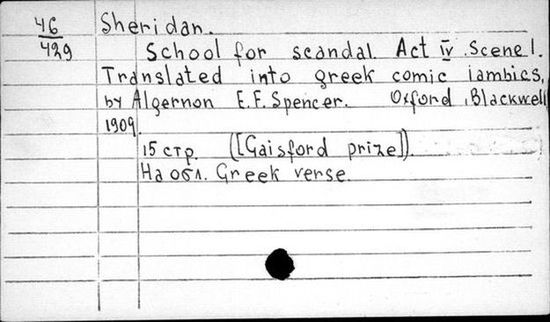 46
429
Sheridan.
School for scandal. Act IV. Scene I.
Translated into greek comic iambics,
by Algernon E.F. Spencer. Oxford, Blackwell
1909.
15 стр. ([Gaisford prize]).
На обл. Greek verse.